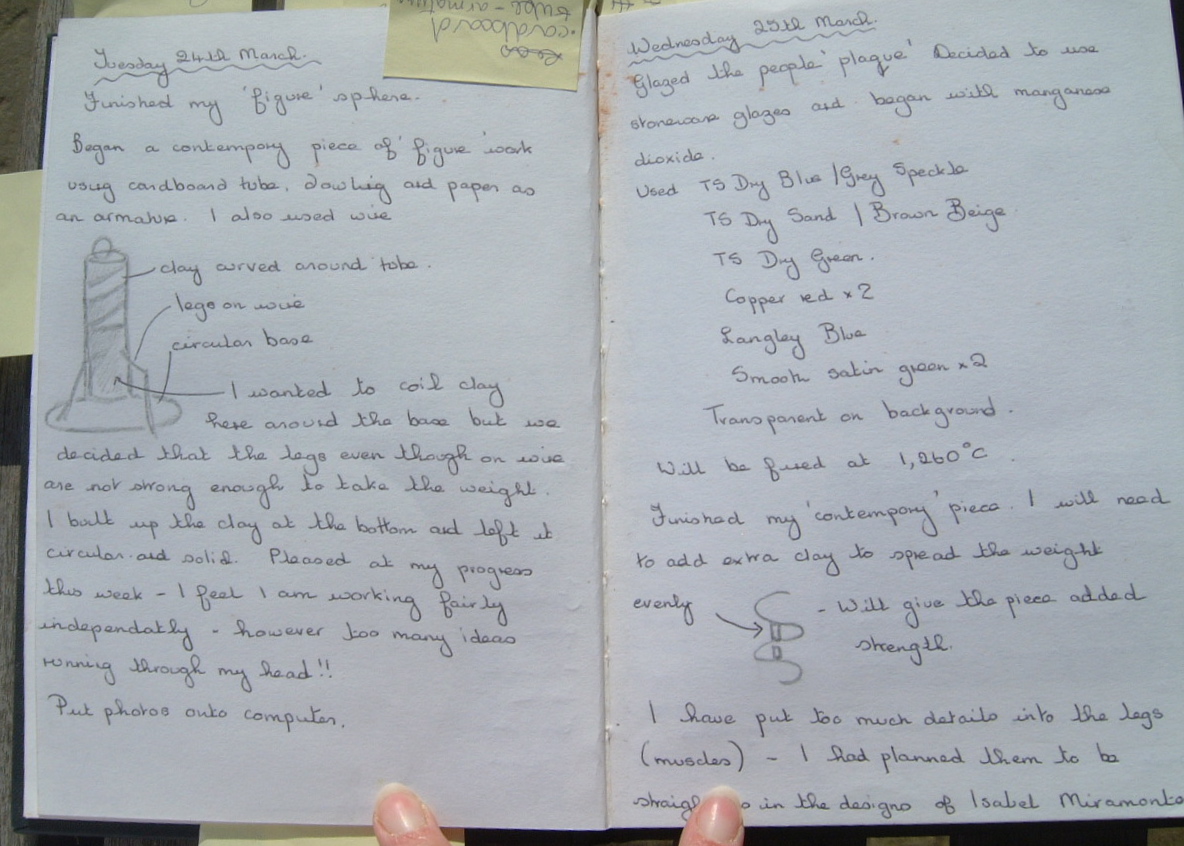 cardboard
tube - armature
Tuesday 24th March.
Finished my 'figure' sphere.
Began a contempory piece of 'figure' work
using cardboard tube, dowling and paper as
an armature. I also used wire
clay curved around tube.
legs on wire
circular base
I wanted to coil clay
here around the base but we
decided that the legs even though on wire
are not strong enough to take the weight.
I built up the clay at the bottom and left it
circular and solid. Pleased at my progress
this week - I feel I am working fairly
independatly - however too many ideas
running through my head!!
Put photos onto computer.
Wednesday 25th March.
Glazed the people 'plaque' Decided to use
stoneware glazes and began with manganese
dioxide.
Used TS Dry Blue / Grey Speckle
TS Dry Sand / Brown Beige
TS Dry Green.
Copper red x 2
Langley Blue
Smooth satin green x 2
Transparent on background.
Will be fused at 1,260°C
Finished my 'contempory' piece. I will need
to add extra clay to spread the weight
evenly - Will give the piece added
strength.
I have put too much details into the legs
(muscles) - I had planned them to be
in the designs of Isabel Miramonto